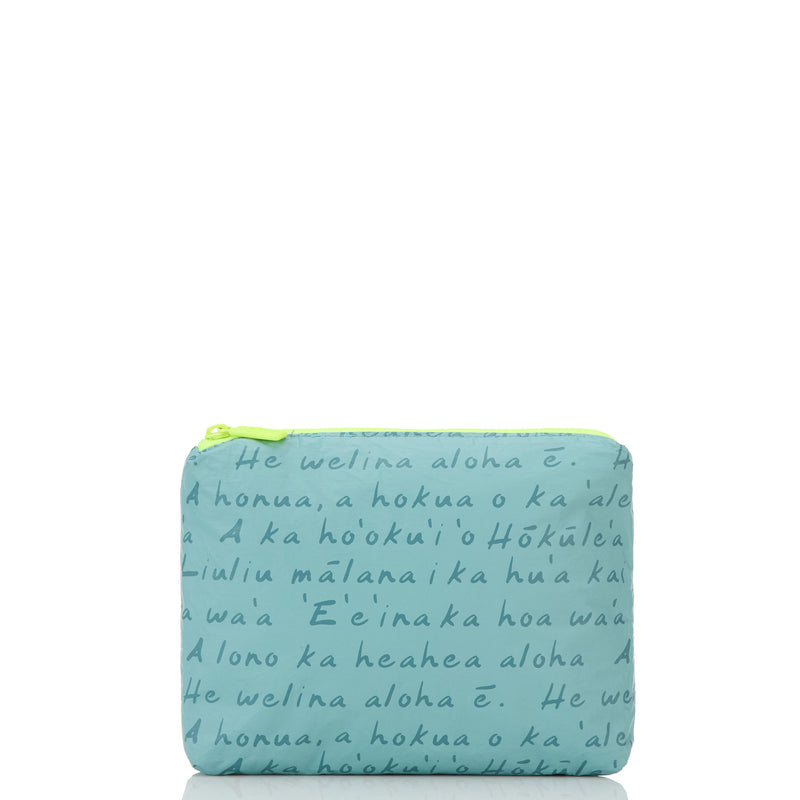 He welina aloha ē. H
A honua, a hokua o ka 'ale
'a A ka ho'oku'i 'o Hōkūle'a
Liuliu mālana i ka hu'a kai
a wa'a 'E'e'ina ka hoa wa'a
A lono ka heahea aloha A
He welina aloha ē. He we
A honua, a hokua o ka 'ale
A ka ho'oku'i 'o Hōkūle'a